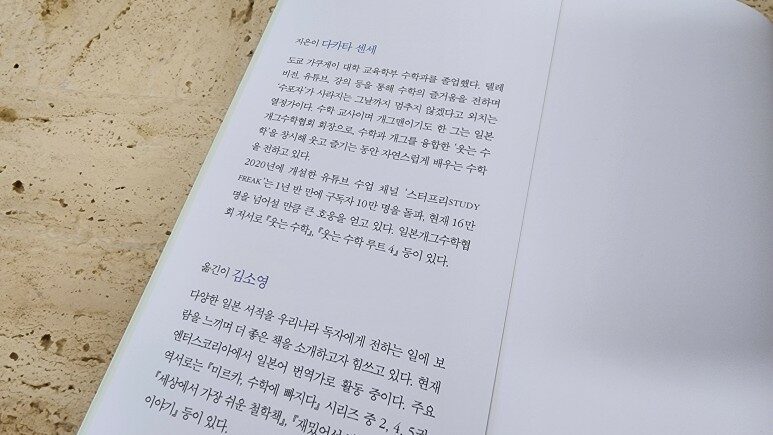 지은이 다카타 센세
도쿄 가쿠게이 대학 교육학부 수학과를 졸업했다. 텔레
비전, 유튜브, 강의 등을 통해 수학의 즐거움을 전하며
'수포자'가 사라지는 그날까지 멈추지 않겠다고 외치는
열정가이다. 수학 교사이며 개그맨이기도 한 그는 일본
개그수학협회 회장으로, 수학과 개그를 융합한 '웃는 수
학'을 창시해 웃고 즐기는 동안 자연스럽게 배우는 수학
을 전하고 있다.
2020년에 개설한 유튜브 수업 채널 '스터프리STUDY
FREAK'는 1년 반 만에 구독자 10만 명을 돌파, 현재 16만
명을 넘어설 만큼 큰 호응을 얻고 있다. 일본개그수학협
회 저서로 『웃는 수학』, 『웃는 수학 루트 4』 등이 있다.
옮긴이 김소영
다양한 일본 서적을 우리나라 독자에게 전하는 일에 보
람을 느끼며 더 좋은 책을 소개하고자 힘쓰고 있다. 현재
엔터스코리아에서 일본어 번역가로 활동 중이다. 주요
역서로는 『미르카, 수학에 빠지다』 시리즈 중 2, 4, 5권
『세상에서 가장 쉬운 철학책』, 『재밌어서
이야기』 등이 있다.